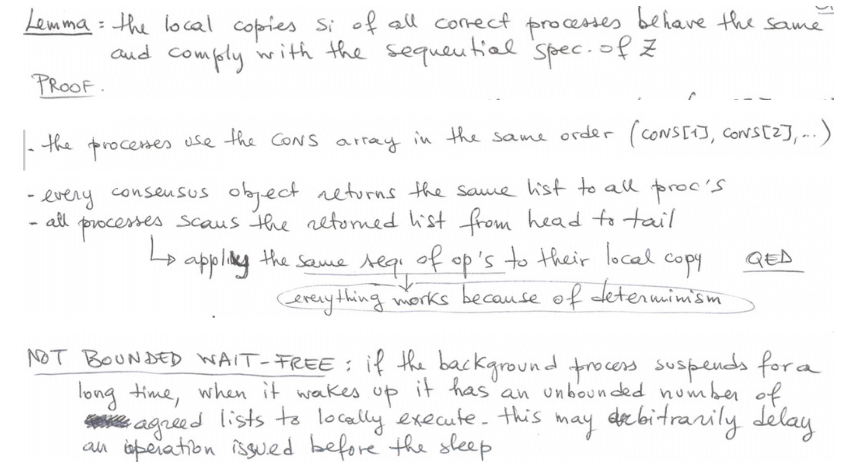 Lemma: the local copies si of all correct processes behave the same
and comply with the sequential spec. of Z
PROOF.
- the processes use the CONS array in the same order (CONS[1], CONS[2], ...)
- every consensus object returns the same list to all proc's
- all processes scans the returned list from head to tail
↳ applying the same seq. of op's to their local copy QED
everything works because of determinism
NOT BOUNDED WAIT-FREE: if the background process suspends for a
long time, when it wakes up it has an unbounded number of
agreed lists to locally execute. this may arbitrarily delay
an operation issued before the sleep